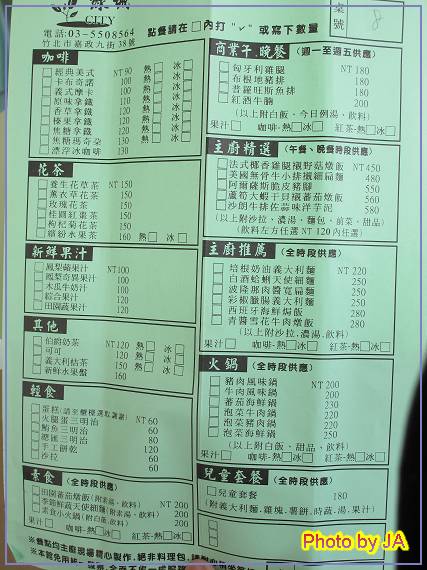 CITY
電話:03-5508564
竹北市嘉政九街38號
點餐請在□內打"✓"或寫下數量
桌號
8
咖啡 熱 冰
經典美式 NT 90
卡布奇諾 100
義式摩卡 110
原味拿鐵 110
香草拿鐵 120
榛果拿鐵 120
焦糖拿鐵 120
焦糖瑪奇朵 130
漂浮冰咖啡 130
花茶
養生花草茶 NT 150
薰衣草花茶 150
玫瑰花茶 150
桂圓紅棗茶 150
枸杞菊花茶 150
繽紛水果茶 160 熱□ 冰□
新鮮果汁
鳳梨蘋果汁 NT100
鳳梨奇異果汁 100
木瓜牛奶汁 100
綜合果汁 120
田園蔬果汁 120
其他
伯爵奶茶 NT120 熱□ 冰□
可可 120 熱□ 冰□
義大利桔茶 150 熱□ 冰□
新鮮水果盤 160
輕食
蛋糕
火腿蛋三明治 NT 60
鮪魚三明治 60
總匯三明治 80
手工餅乾 120
沙拉 60
素食 (全時段供應)
田園蕃茄燉飯 NT 200
素食小火鍋 200
果汁□ 咖啡-熱□冰□ 紅茶-熱□冰□
商業午.晚餐 (週一至週五供應)
匈牙利雞腿 NT 180
布根地豬排 180
普羅旺斯魚排 180
紅酒牛腩 200
(以上附白飯、今日例湯、飲料)
果汁□ 咖啡-熱□冰□ 紅茶-熱□冰□
主廚精選 (午餐、晚餐時段供應)
法式椰香雞腿襯野菇燉飯 NT450
美國無骨牛小排襯細扁麵 480
阿爾薩斯脆皮豬腳 550
蘆筍大蝦干貝襯蕃茄燉飯 580
沙朗牛排佐蒜味洋芋泥 580
(以上附沙拉、濃湯、麵包、前菜、甜品)
(飲料左方任選 NT 120內任選)
主廚推薦 (全時段供應)
培根奶油義大利麵 NT 220
白酒蛤蜊天使細麵 250
波隆那肉醬寬扁麵 250
彩椒臘腸義大利麵 250
西班牙海鮮焗飯 280
青醬雪花牛肉燉飯 280
(以上附沙拉.濃湯.飲料)
果汁□ 咖啡-熱□冰□ 紅茶-熱□冰□
火鍋 (全時段供應)
豬肉風味鍋 NT 200
牛肉風味鍋 200
蕃茄海鮮鍋 230
泡菜牛肉鍋 220
泡菜豬肉鍋 220
泡菜海鮮鍋 250
(以上附白飯、甜品、飲料)
果汁□ 咖啡-熱□冰□ 紅茶-熱□冰□
兒童套餐 (全時段供應)
兒童套餐 180
(附義大利麵.雞塊.薯餅.時蔬.湯.果汁)
※餐點均主廚現場精心製作,絕非料理包
Photo by JA